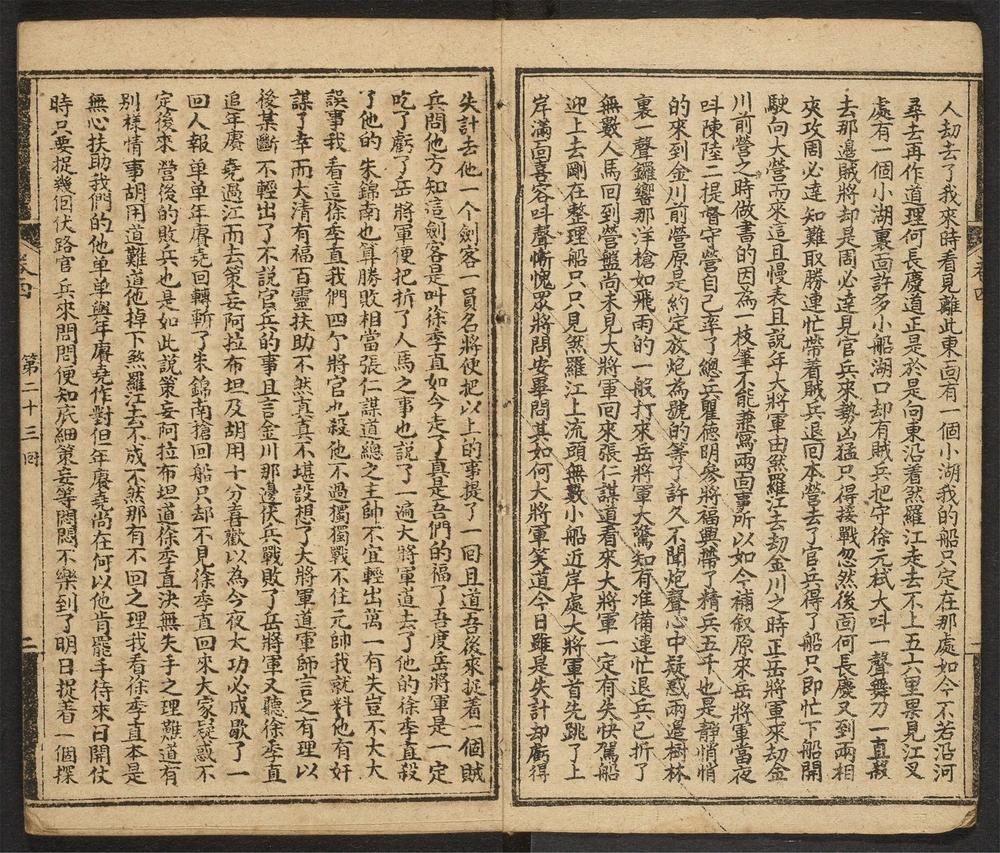 人刼去了我來時看見離此東面有一個小湖我的船只定在那處如今不若沿河
尋去再作道理何長慶道正是於是向東沿着煞羅江走去不上五六里果見江叉
處有一個小湖裏面許多小船湖口却有賊兵把守徐元栻大呌一聲舞刀一直殺
去那邊賊將却是周必達見官兵來勢凶猛只得接戰忽然後面何長慶又到兩相
夾攻周必達知難取勝連忙帶着賊兵退回本營去了官兵得了船只即忙下船開
駛向大營而來這且慢表且説年大將軍由煞羅江去刼金川之時正岳將軍來刼金
川前營之時做書的因為一枝筆不能兼寫兩面事所以如今補叙原來岳將軍當夜
呌陳陸二提督守營自己率了總兵瞿德明參將福興帶了精兵五千也是靜悄悄
的來到金川前營原是約定放炮為號的等了許久不聞炮聲心中疑惑兩邊樹林
裏一聲鑼響那洋槍如飛雨的一般打來岳將軍大驚知有准備連忙退兵已折了
無數人馬回到營盤尚未見大將軍回來張仁謀道看來大將軍一定有失快駕船
迎上去剛在整理船只只見煞羅江上流頭無數小船近岸處大將軍首先跳了上
岸滿面喜容呌聲慚愧眾將問安畢問其如何大將軍笑道今日雖是失計却虧得
失計去他一个劍客一員名將便把以上的事提了一回且道吾後來捉着一個賊
兵問他方知這劍客是叫徐李直如今走了真是吾們的福了吾度岳將軍是一定
吃了虧了岳將軍便把折了人馬之事也説了一遍大將軍道去了他的徐李直殺
了他的朱錦南也算勝敗相當張仁謀道總之主帥不宜輕出萬一有失豈不大大
誤事我看這徐李直我們四个將官也殺他不過獨獨戰不住元帥我就料他有奸
謀了幸而大清有福百靈扶助不然真真不堪設想了大將軍道軍師言之有理以
後某斷不輕出了不説官兵的事且言金川那邊伏兵戰敗了岳將軍又聽徐李直
追年賡堯過江而去策妄阿拉布坦及胡用十分喜歡以為今夜大功必成歇了一
回人報單單年賡堯回轉斬了朱錦南搶回船只却不見徐李直回來大家疑惑不
定後來營後的敗兵也是如此説策妄阿拉布坦道徐李直決無失手之理難道有
别樣情事胡用道難道他掉下煞羅江去不成不然那有不回之理我看徐李直本是
無心扶助我們的他單單與年賡堯作對但年賡堯尚在何以他肯罷手待來日開仗
時只要捉幾個伏路官兵來問問便知底細策妄等悶悶不樂到了明日捉着一個探
卷四
第二十三回
二